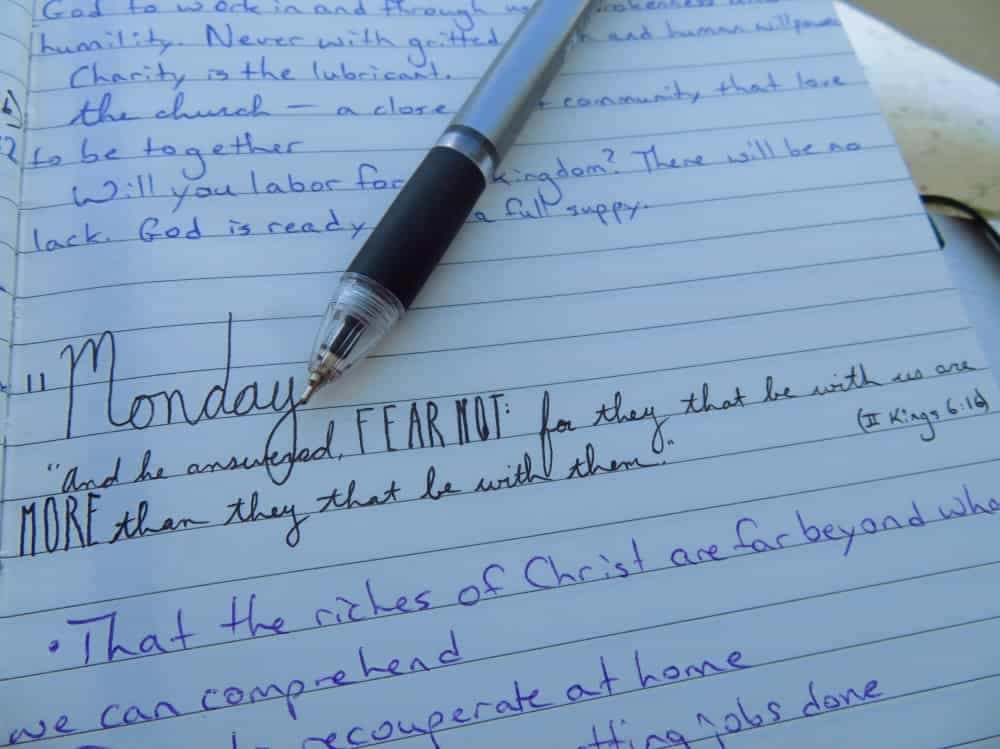 God to work in and through
humility. Never with gritted and human willpower
Charity is the lubricant.
the church — a close community that love
to be together
Will you labor for kingdom? There will be no
lack. God is ready a full suppy.
"Monday
"And he answered, FEAR NOT: for they that be with us are
MORE than they that be with them." (II Kings 6:16)
• That the riches of Christ are far beyond wha
we can comprehend
recouperate at home
tting jobs done